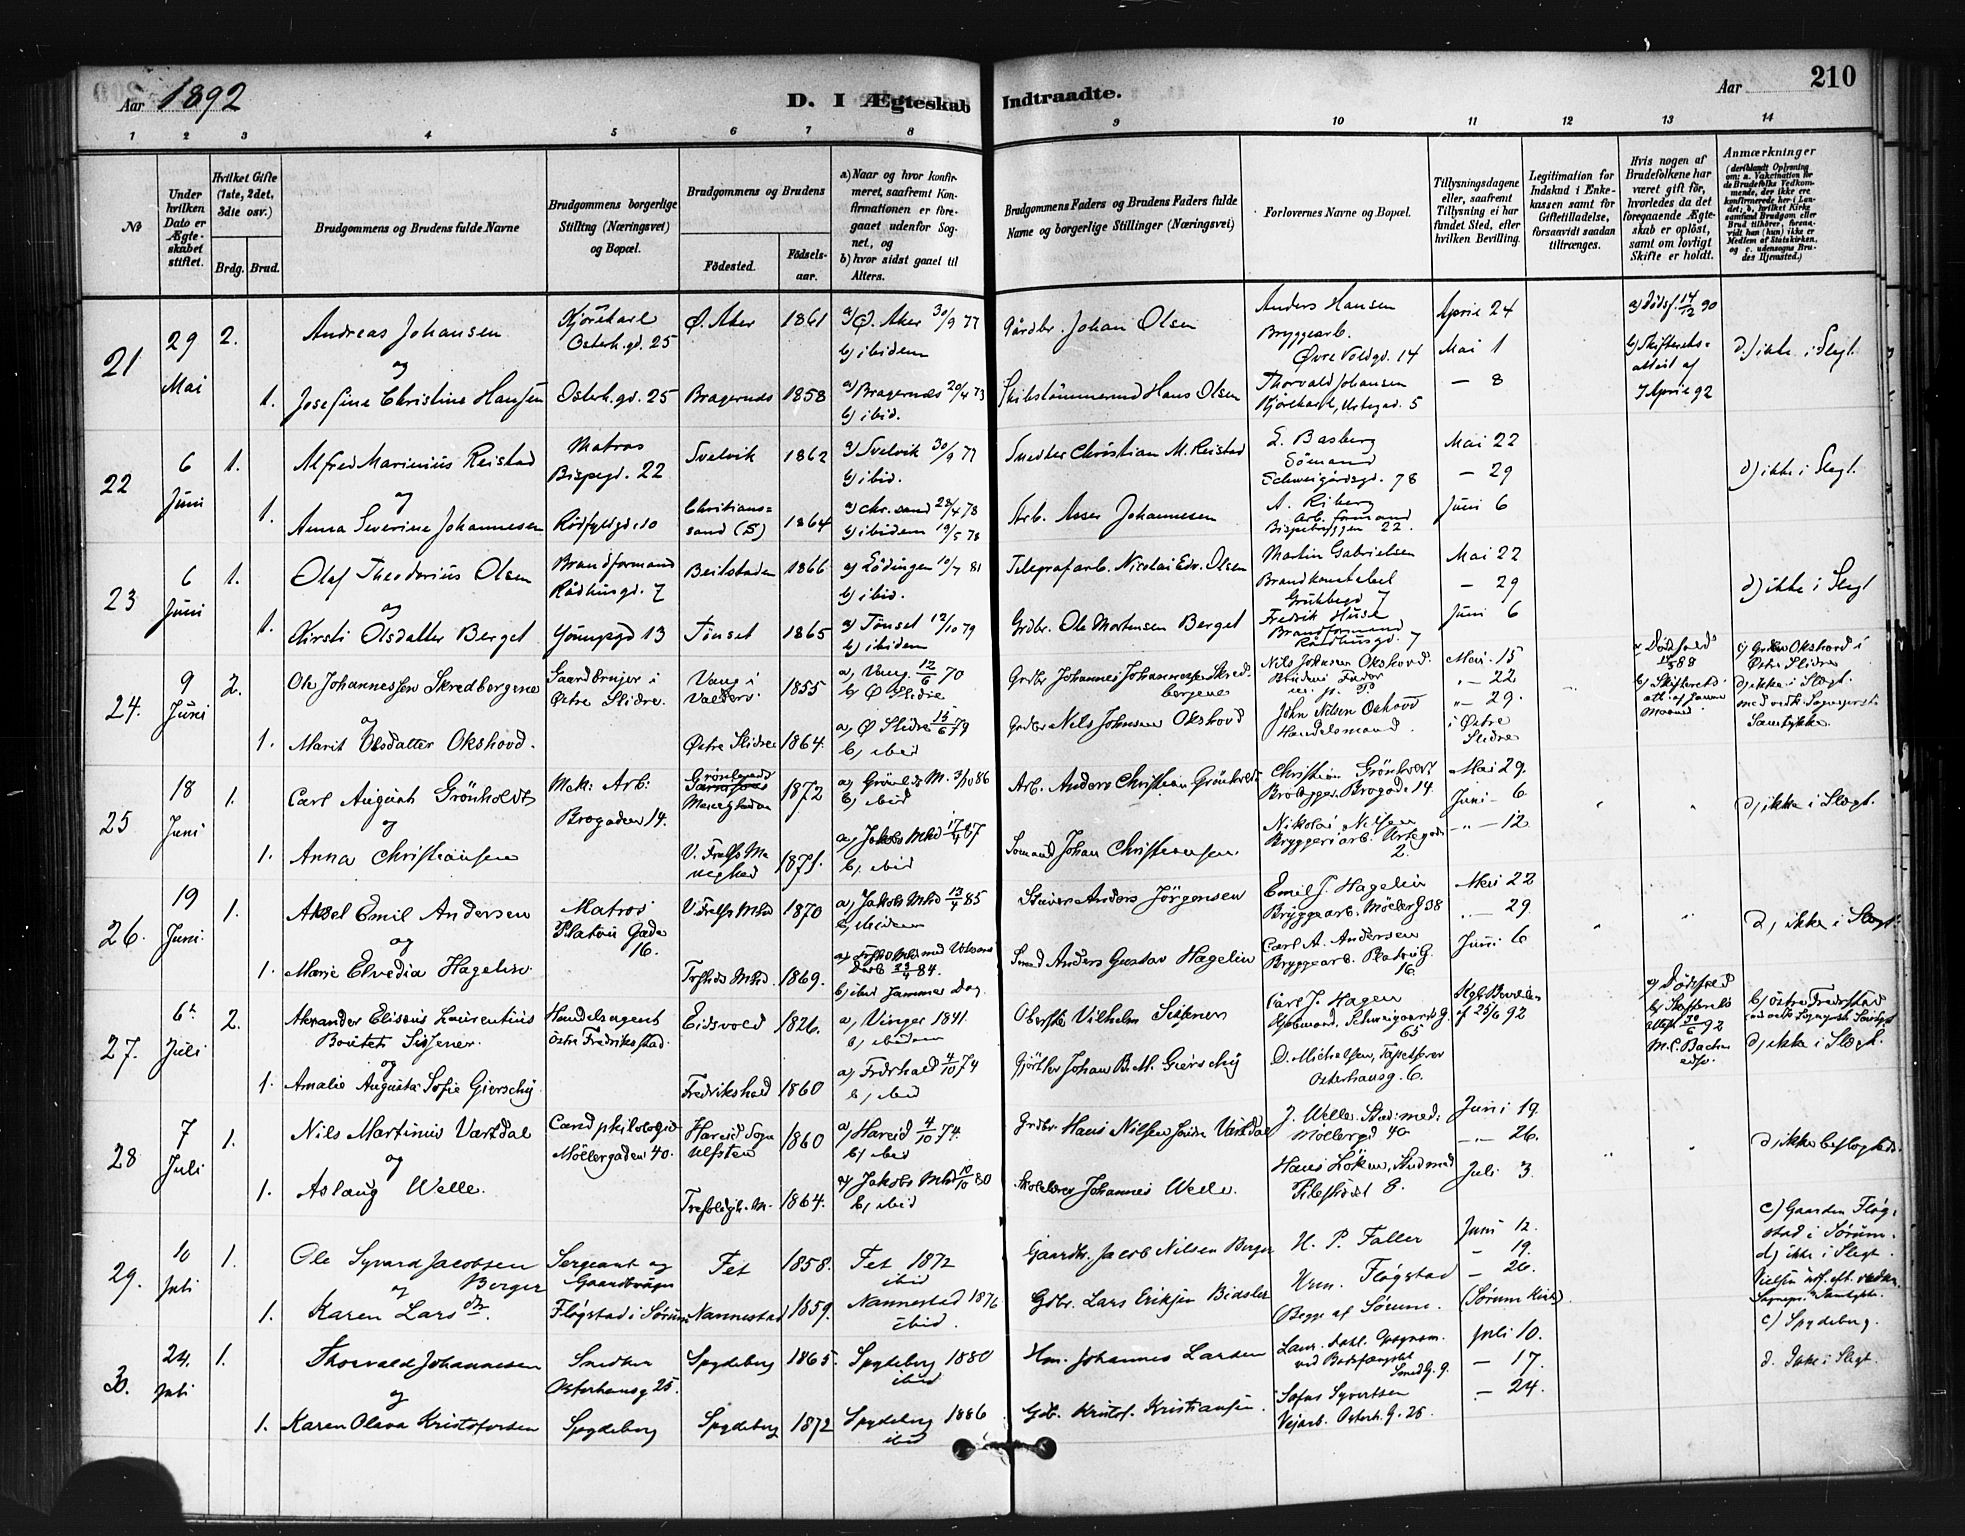 Aar 1892 D. I Ægteskab Indtraadte. Aar 210
1 2 3 4 5 6 7 8 9 10 11 12 13 14
№
Under hvilken Dato er Ægteskabet stiftet.
Hvilket Gifte (1ste, 2det, 3die osv.)
Brdg. Brud.
Brudgommens og Brudens fulde Navne
Brudgommens borgerlige Stilling (Næringsvei) og Bopæl.
Brudgommens og Brudens
Födested. Födselsaar.
a) Naar og hvor konfirmeret, saafremt Konfirmationen er foregaaet udenfor Sognet, og
b) hvor sidst gaaet til Alters.
Brudgommens Faders og Brudens Faders fulde Navne og borgerlige Stillinger (Næringsvei)
Forlovernes Navne og Bopæl.
Tillysningsdagene eller, saafremt Tillysning ei har fundet Sted, efter hvilken Bevilling.
Legitimation for Indskud i Enkekassen samt for Giftetilladelse, forsaavidt saadan tiltrænges.
Hvis nogen af Brudefolkene har været gift för, hvorledes da det foregaaende Ægteskab er oplöst, samt om lovligt Skifte er holdt.
Anmærkninger
21 29 Mai 2. Andreas Johansen Kjörekarl Osterh.gd. 25 Ø. Aker 1861 a) Ø. Aker 30/9 77 b) ibidem Gårdbr. Johan Olsen Anders Hansen Bryggearb. Øvre Voldgd. 14 April 24 Mai 1 a) Dødsf. 14/12 90 b) Skifterets attest af 7 April 92 d) ikke i Slegt
og
1. Josefine Christine Hansen Osterh.gd. 25 Bragernæs 1858 a) Bragernæs 20/4 73 b) ibid. Skibstömmermd Hans Olsen Thorvald Johansen Kjörekarl, Urtegd. 5 — 8
22 6 Juni 1. Alfred Marinius Reistad Matros Bispegd. 22 Svelvik 1862 a) Svelvik 30/9 77 b) ibid. Snedker Christian M. Reistad L. Basberg Sömand Schweigårdsgd. 78 Mai 22 — 29 d) ikke i Slegt.
og
1. Anna Severine Johannesen Rödfyldgd. 10 Christianssand (S) 1864 a) Chr.sand 28/4 78 b) ibidem 19/5 78 Arb. Asser Johannesen A. Riberg Arb. formand Bispebryggen 22. Juni 6
23 6 Juni 1. Olaf Theodorius Olsen Brandformand Rådhusgd. 7 Beitstaden 1866 a) Lödingen 10/7 81 b) ibid. Telegrafarb. Nicolai Edv. Olsen Martin Gabrielsen Brandkonstabel 7 Mai 22 — 29 d) ikke i Slegt
og
1. Kirsti Olsdatter Berget Youngsgd 13 Tönset 1865 a) Tönset 12/10 79 b) ibidem Grdbr. Ole Mortensen Berget Fredrik Huse Brandformand Rådhusgd. 7 Juni 6
24. 9 Juni 2. Ole Johannessen Skredbergene Gaardbruger i Østre Slidre. Vang i Valders. 1855 a) Vang 12/6 70 b) Ø Slidre Grdbr. Johannes Johannessen Skredbergene Nils Johnsen Okshovd. Brudens Fader Mai. 15 " — 22 a Dødsfald 88 c) Grden Okshovd i Østre Slidre d) ikke i Slægt.
og
1. Marit Nilsdatter Okshovd. Østre Slidre 1864. a) Ø Slidre 15/6 79 b) ibid Grdbr Nils Johnsen Okshovd John Nilsen Oshovd Handelsmand. " — 29. i Østre Slidre
25 18 Juni 1. Carl August Grönholdt Mek: Arb: Brogaden 14. Grönlands Menighed 1872 a) Grönlds M. 3/10 86 b) ibid Arb. Anders Christian Grönholdt Christian Grönholdt Brobygger. Brogade 14 Mai 29. Juni — 6 " " d) ikke i Slægt.
og
1. Anna Christiansen V. Frelss Menighed 1871. a) Jakobs Mhd 17/4 87 b) ibid Sømand Johan Christiansen Nikolai Nilsen Bryggeriarb. Urtegade 2. — " — 12
26. 19 Juni 1. Aksel Emil Andersen Matros Platous Gade 16. V. Frelss Mhd 1870 a) Jakobs Mhd 13/4 85 b) ibidem Anders Jörgensen Emil J. Hagelin Bryggearb. Möllerg 38 Mai 22 " — 29. " d) ikke i Slægt.
og
1. Marie Elvedia Hagelin. 1869. b) ibid Jammers Dag. Smed Anders Gustav Hagelin Carl A. Andersen Bryggearb. Platous G. 16. Juni 6
27. 6te Juli 2. Alexander Elisæus Laurentius Boutets Sissener. Handelsagent Østre Fredriksstad. Eidsvold 1826. a) Vinger 1841. b) ibidem Oberst Vilhelm Sissener Carl J. Hagen Schweigaards G. 65 Kgl. Bevilling af 25/6 92 a) Dödsfald d) ikke i Slægt.
og
1. Amalie Augusta Sofie Gierschy Fredrikshald 1860 a) Frdrhald 4/10 74 b) ibid Gjörtler Johan B. M. Gierschy D. Michelsen, Tapetserer Osterhausg. 6.
28 7 Juli 1. Nils Martinus Vartdal Cand philologiæ Möllergaden 40. Hareid Sogn Ulfsten 1860 a) Hareid 4/10 74. b) ibid Grdbr. Hans Nilsen Vartdal J. Welle. Stud: med: Möllergd 40 Juni 19. " — 26. " d) ikke beslægtede.
og
1. Aslaug Welle. Trefoldigh. M. 1864. a) Jakobs Mhd 10/10 80 b) ibid Skolelærer Johannes Welle. Hans Löken, Stud med Pilestrædet 8. Juli 3.
29. 10 Juli 1. Ole Syvard Jacobsen Berger Sergeant og Gaardbruger Fet 1858. Fet 1872 ibid Gaardbr. Jacob Nilsen Berger H. P. Faller Juni 12. — 19. c) Gaarden Fløgstad i Sørum. d) ikke i Slegt.
og
1. Karen Larsdtr. Fløgstad i Sørum Nannestad 1859. Nannestad 1876 ibid. Gdbr. Lars Eriksen Bidsler Fløgstad (Begge af Sørum. — 26. (Sørum Kirke)
30. 24. Juli 1. Thorvald Johannesen Snedker Osterhausg 25. Spydeberg 1865. Spydeberg 1880 ibid Hm. Johannes Larsen Smed G. 9. Juli 10. — 17. c) Spydeberg. d. Ikke i Slegt.
og
1. Karen Olava Kristofersen Spydeberg Spydeberg 1872 Spydeberg 1886 ibid Gdb. Kristof. Kristiansen Sofus Syvertsen Vejarb. Osterh. G. 25. — 24.